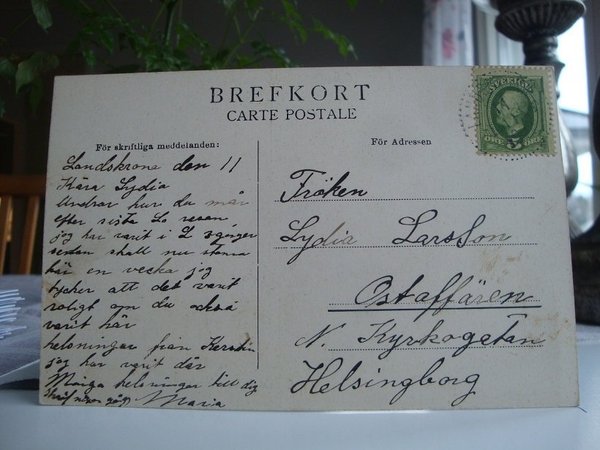 BREFKORT
CARTE POSTALE
För skriftliga meddelanden:
För Adressen
SVERIGE
Landskrona den 11
Kära Lydia
Undrar hur du mår
efter sista resan
jag har varit i L 2 gånger
sedan skall nu stanna
här en vecka jag
tycker att det varit
roligt om du också
varit här
helsningar från Kerstin
jag har varit där
Många helsningar till dig
skrif någon gång Maria
Fröken
Lydia Larsson
Ostaffären
N. Kyrkogatan
Helsingborg